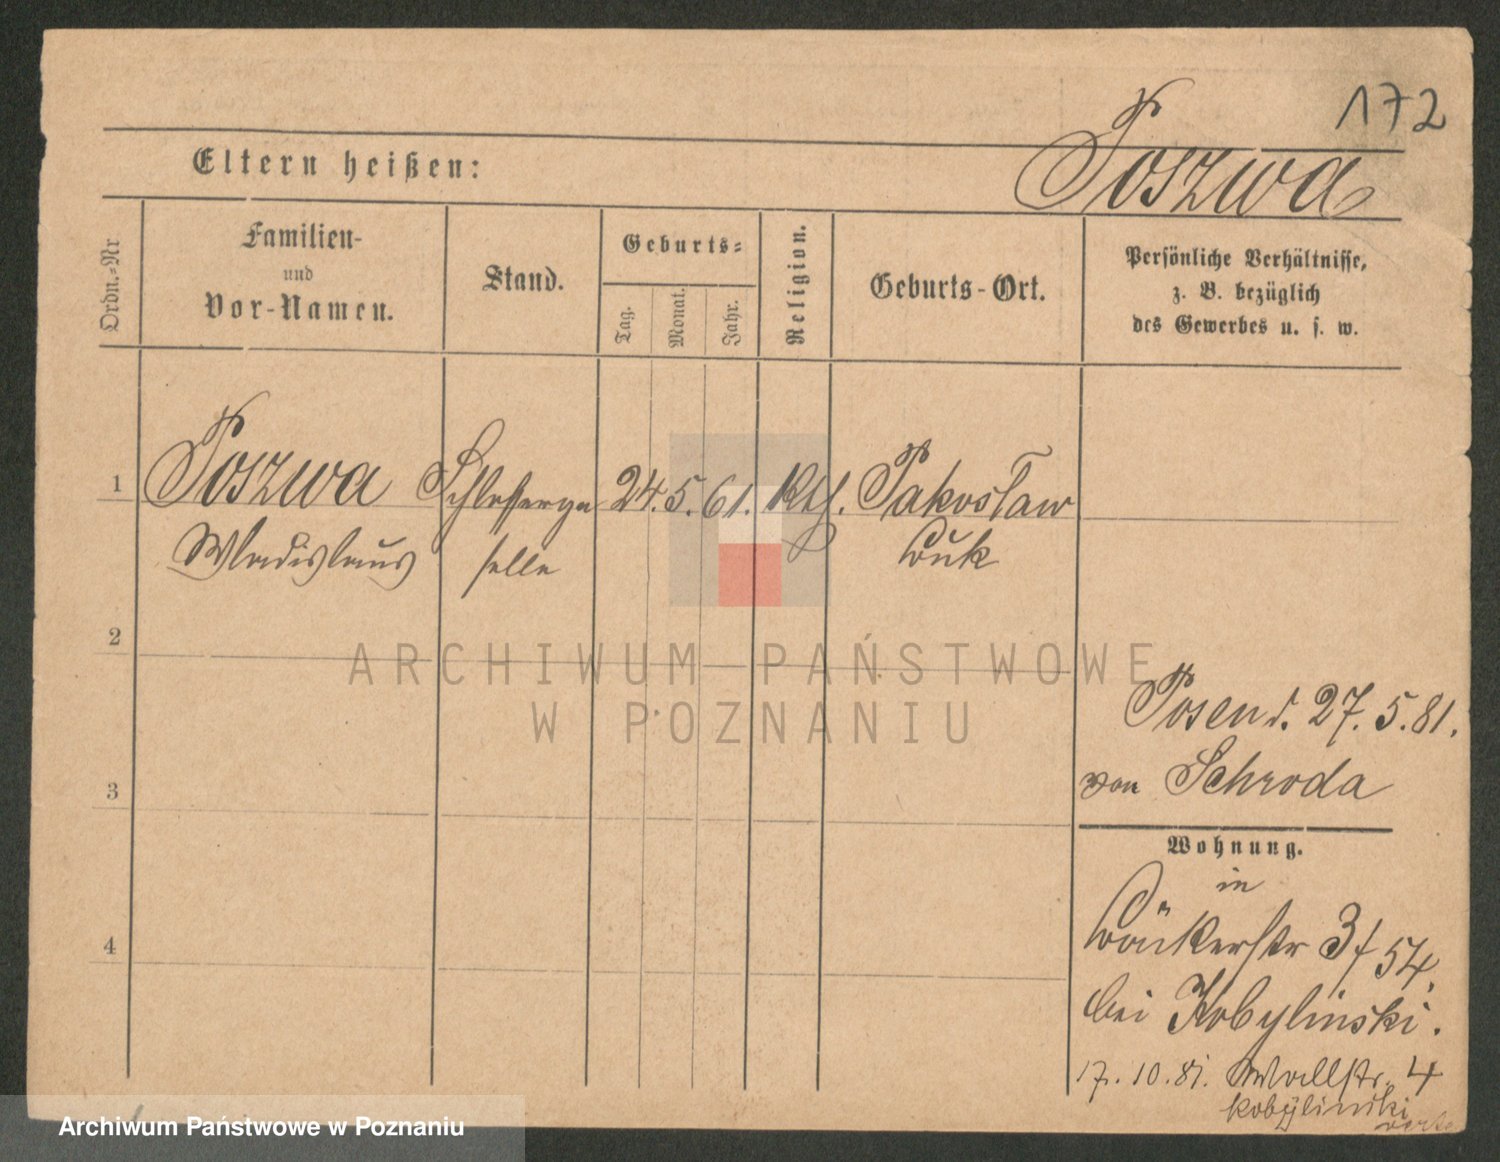 172
Poszwa
Eltern heißen:
Ordn.-Nr
Familien-
und
Vor-Namen.
Stand.
Geburts-
Tag.
Monat.
Jahr.
Religion.
Geburts-Ort.
Persönliche Verhältnisse,
z. B. bezüglich
des Gewerbes u. s. w.
1
Poszwa Schlosserge 24. 5. 61. Kth. Pakosław
Wladislaus selle Buk
2
ARCHIWUM PAŃSTWOWE
W POZNANIU
Posen d. 27. 5. 81.
von Schroda
3
Wohnung.
in
Bäckerstr 3/54.
4
bei Kobylinski.
17. 10. 81. Wallstr. 4
Kobylinski
verte
Archiwum Państwowe w Poznaniu